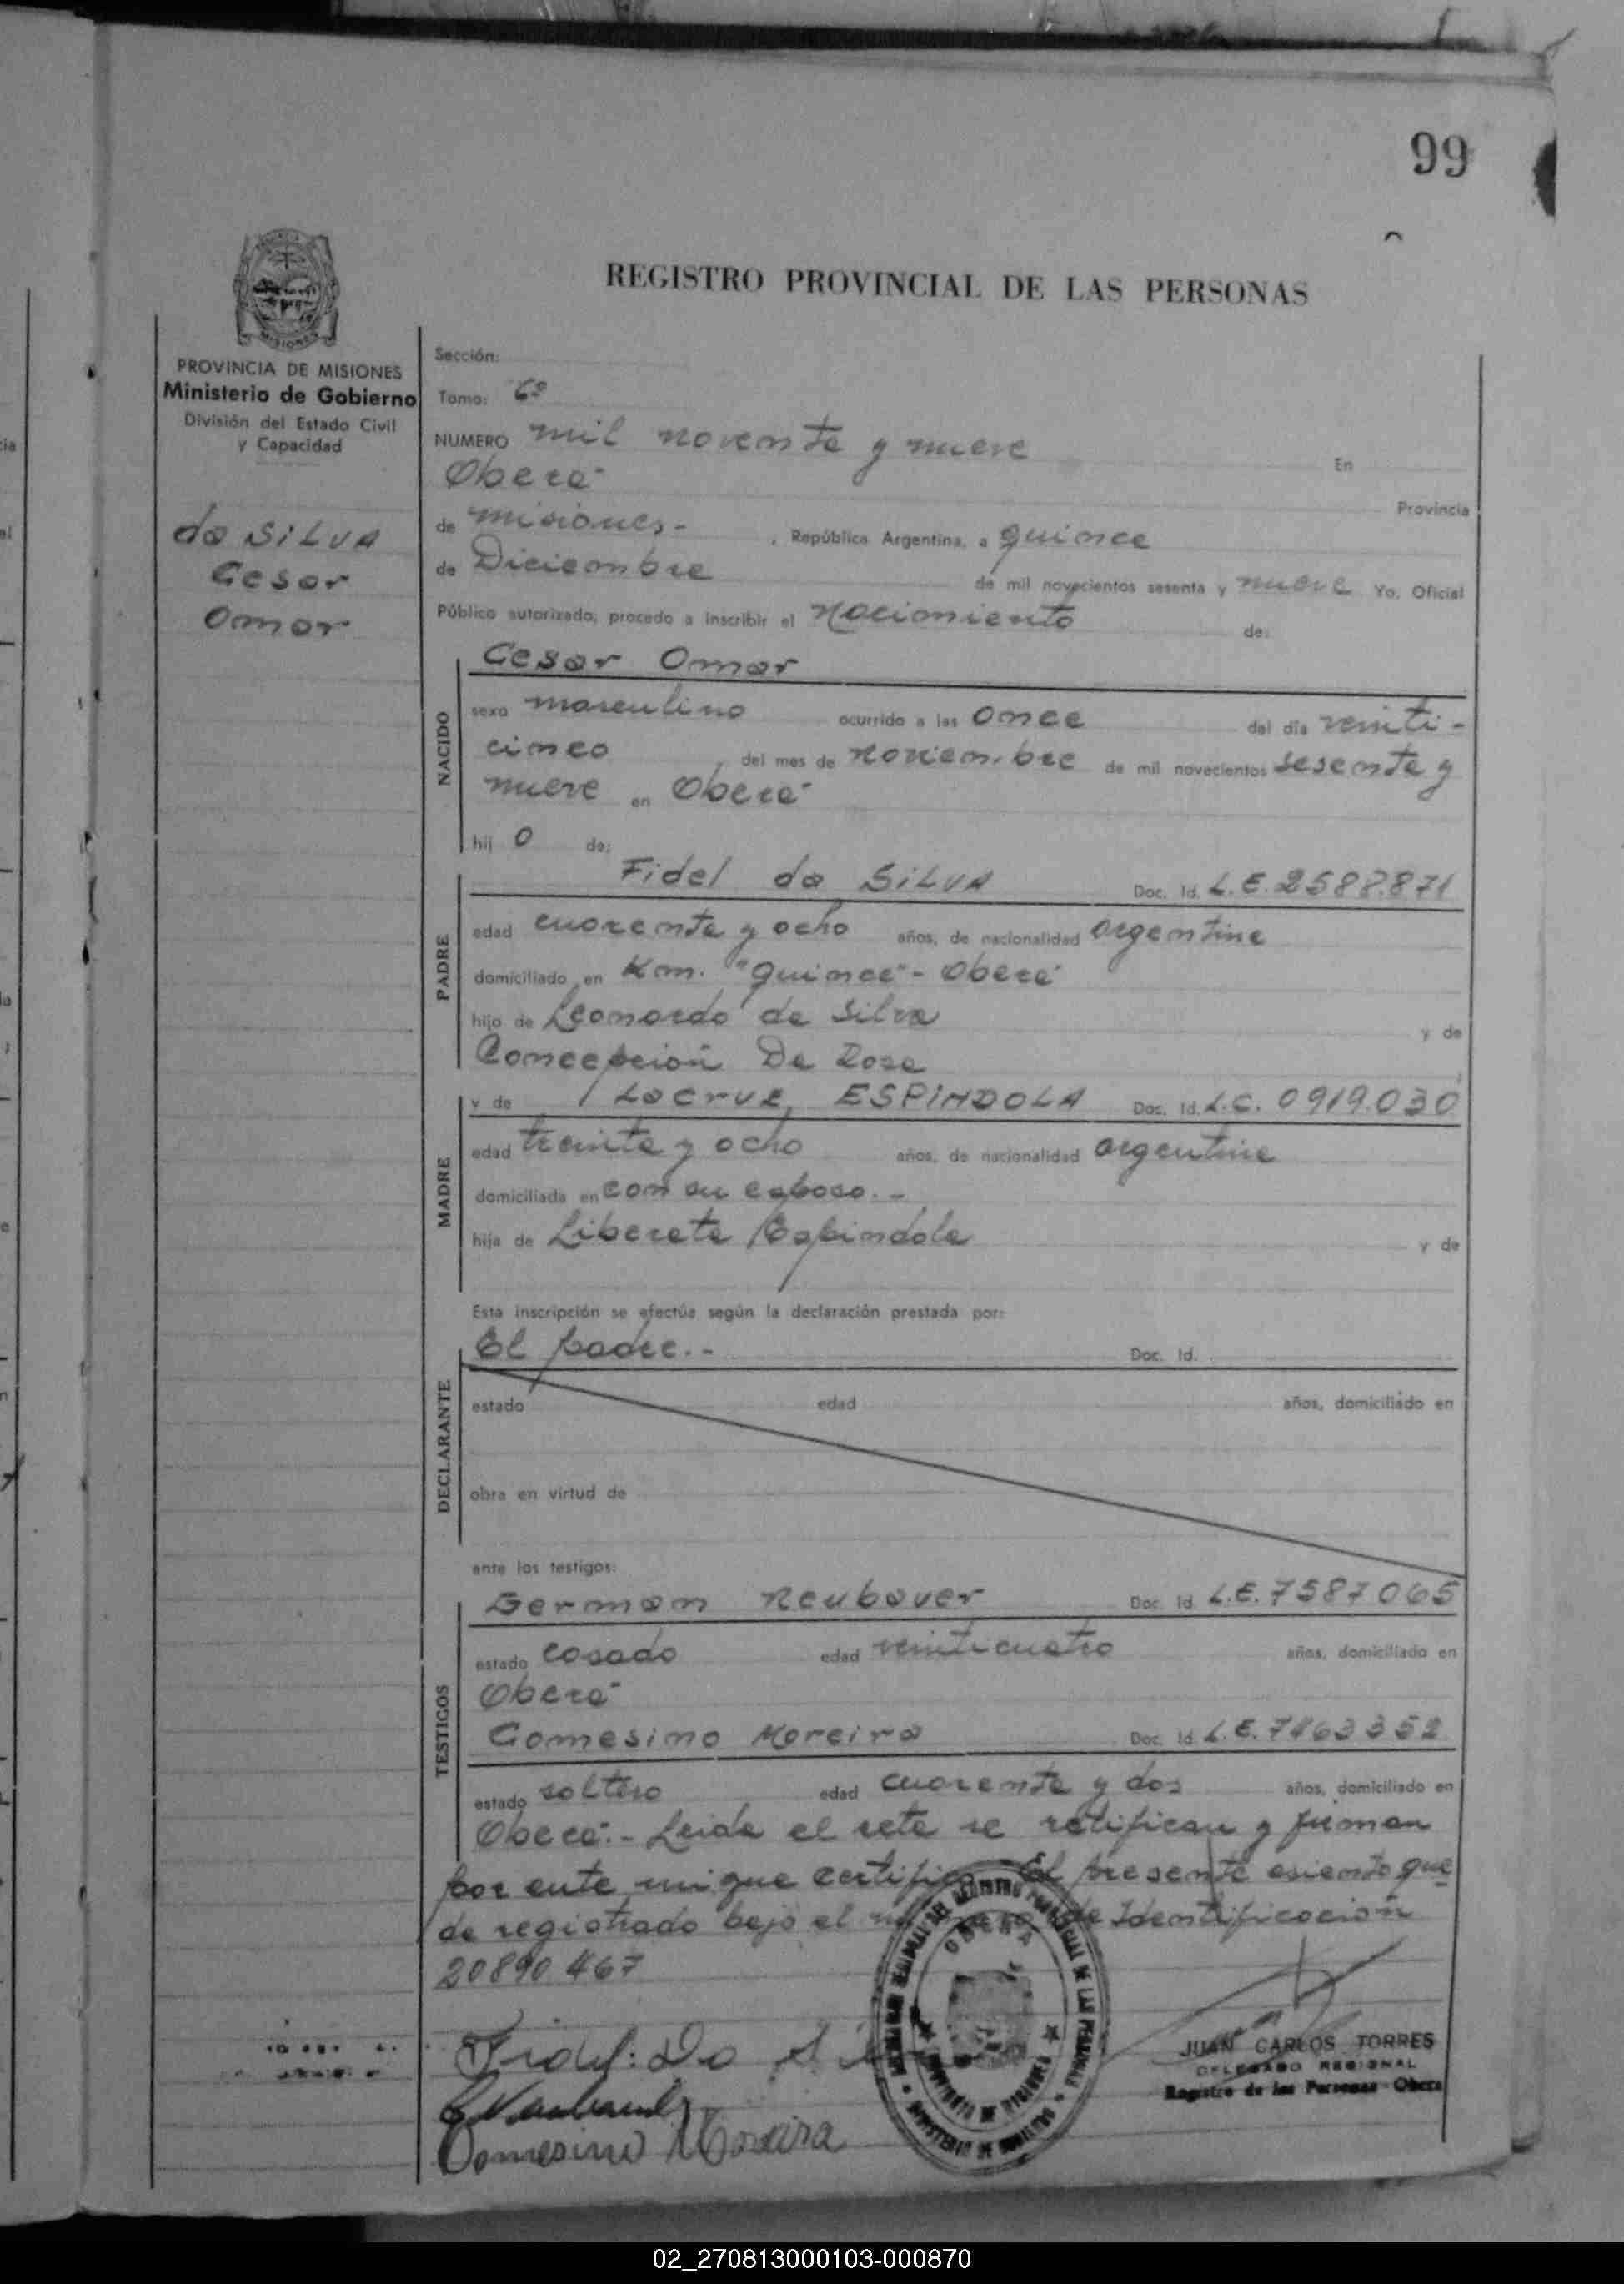 99
REGISTRO PROVINCIAL DE LAS PERSONAS
PROVINCIA DE MISIONES
Ministerio de Gobierno
División del Estado Civil
y Capacidad
da SILVA
Cesar
Omar
Sección:
Tomo: 6º
NUMERO mil noventa y nueve En
Oberá
Provincia
de Misiones- , República Argentina, a quince
de Diciembre de mil novecientos sesenta y nueve Yo, Oficial
Público autorizado, procedo a inscribir el Nacimiento de:
NACIDO
Cesar Omar
sexo masculino ocurrido a las once del día veinti-
cinco del mes de noviembre de mil novecientos sesenta y
nueve en Oberá
hij o de:
PADRE
Fidel da SILVA Doc. Id. L.E. 2588.871
edad cuarenta y ocho años, de nacionalidad argentina
domiciliado en Km. "quince"- Oberá
hijo de Leonardo da Silva y de
Concepción Da Rosa
MADRE
y de LaCruz ESPINDOLA Doc. Id. L.C. 0919.030
edad treinta y ocho años, de nacionalidad argentina
domiciliada en con su esposo.-
hija de Liberata Espindola y de
Esta inscripción se efectúa según la declaración prestada por:
DECLARANTE
El padre.- Doc. Id.
estado edad años, domiciliado en
obra en virtud de
ante los testigos:
TESTIGOS
German Neubauer Doc. Id. L.E. 7587065
estado casado edad veinticuatro años, domiciliado en
Oberá
Gomesino Moreira Doc. Id. L.E. 7463352
estado soltero edad cuarenta y dos años, domiciliado en
Oberá.- Leida el acta se ratifican y firman
por ante mi que certifico El presente asiento que
da registrado bajo el de Identificación
20890.467
Fidel: Da
Gomesino Moreira
OBERA
JUAN CARLOS TORRES
DELEGADO REGIONAL
Registro de las Personas - Obera
02_270813000103-000870